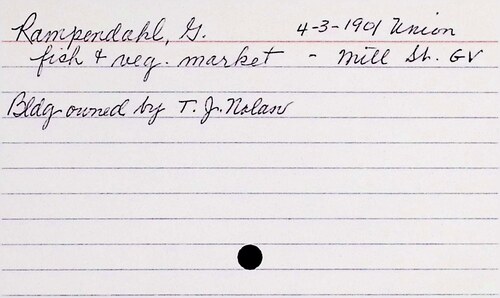 Rampendahl, G. 4-3-1901 Union
fish & veg. market - Mill St. GV
Bldg owned by T. J. Nolan